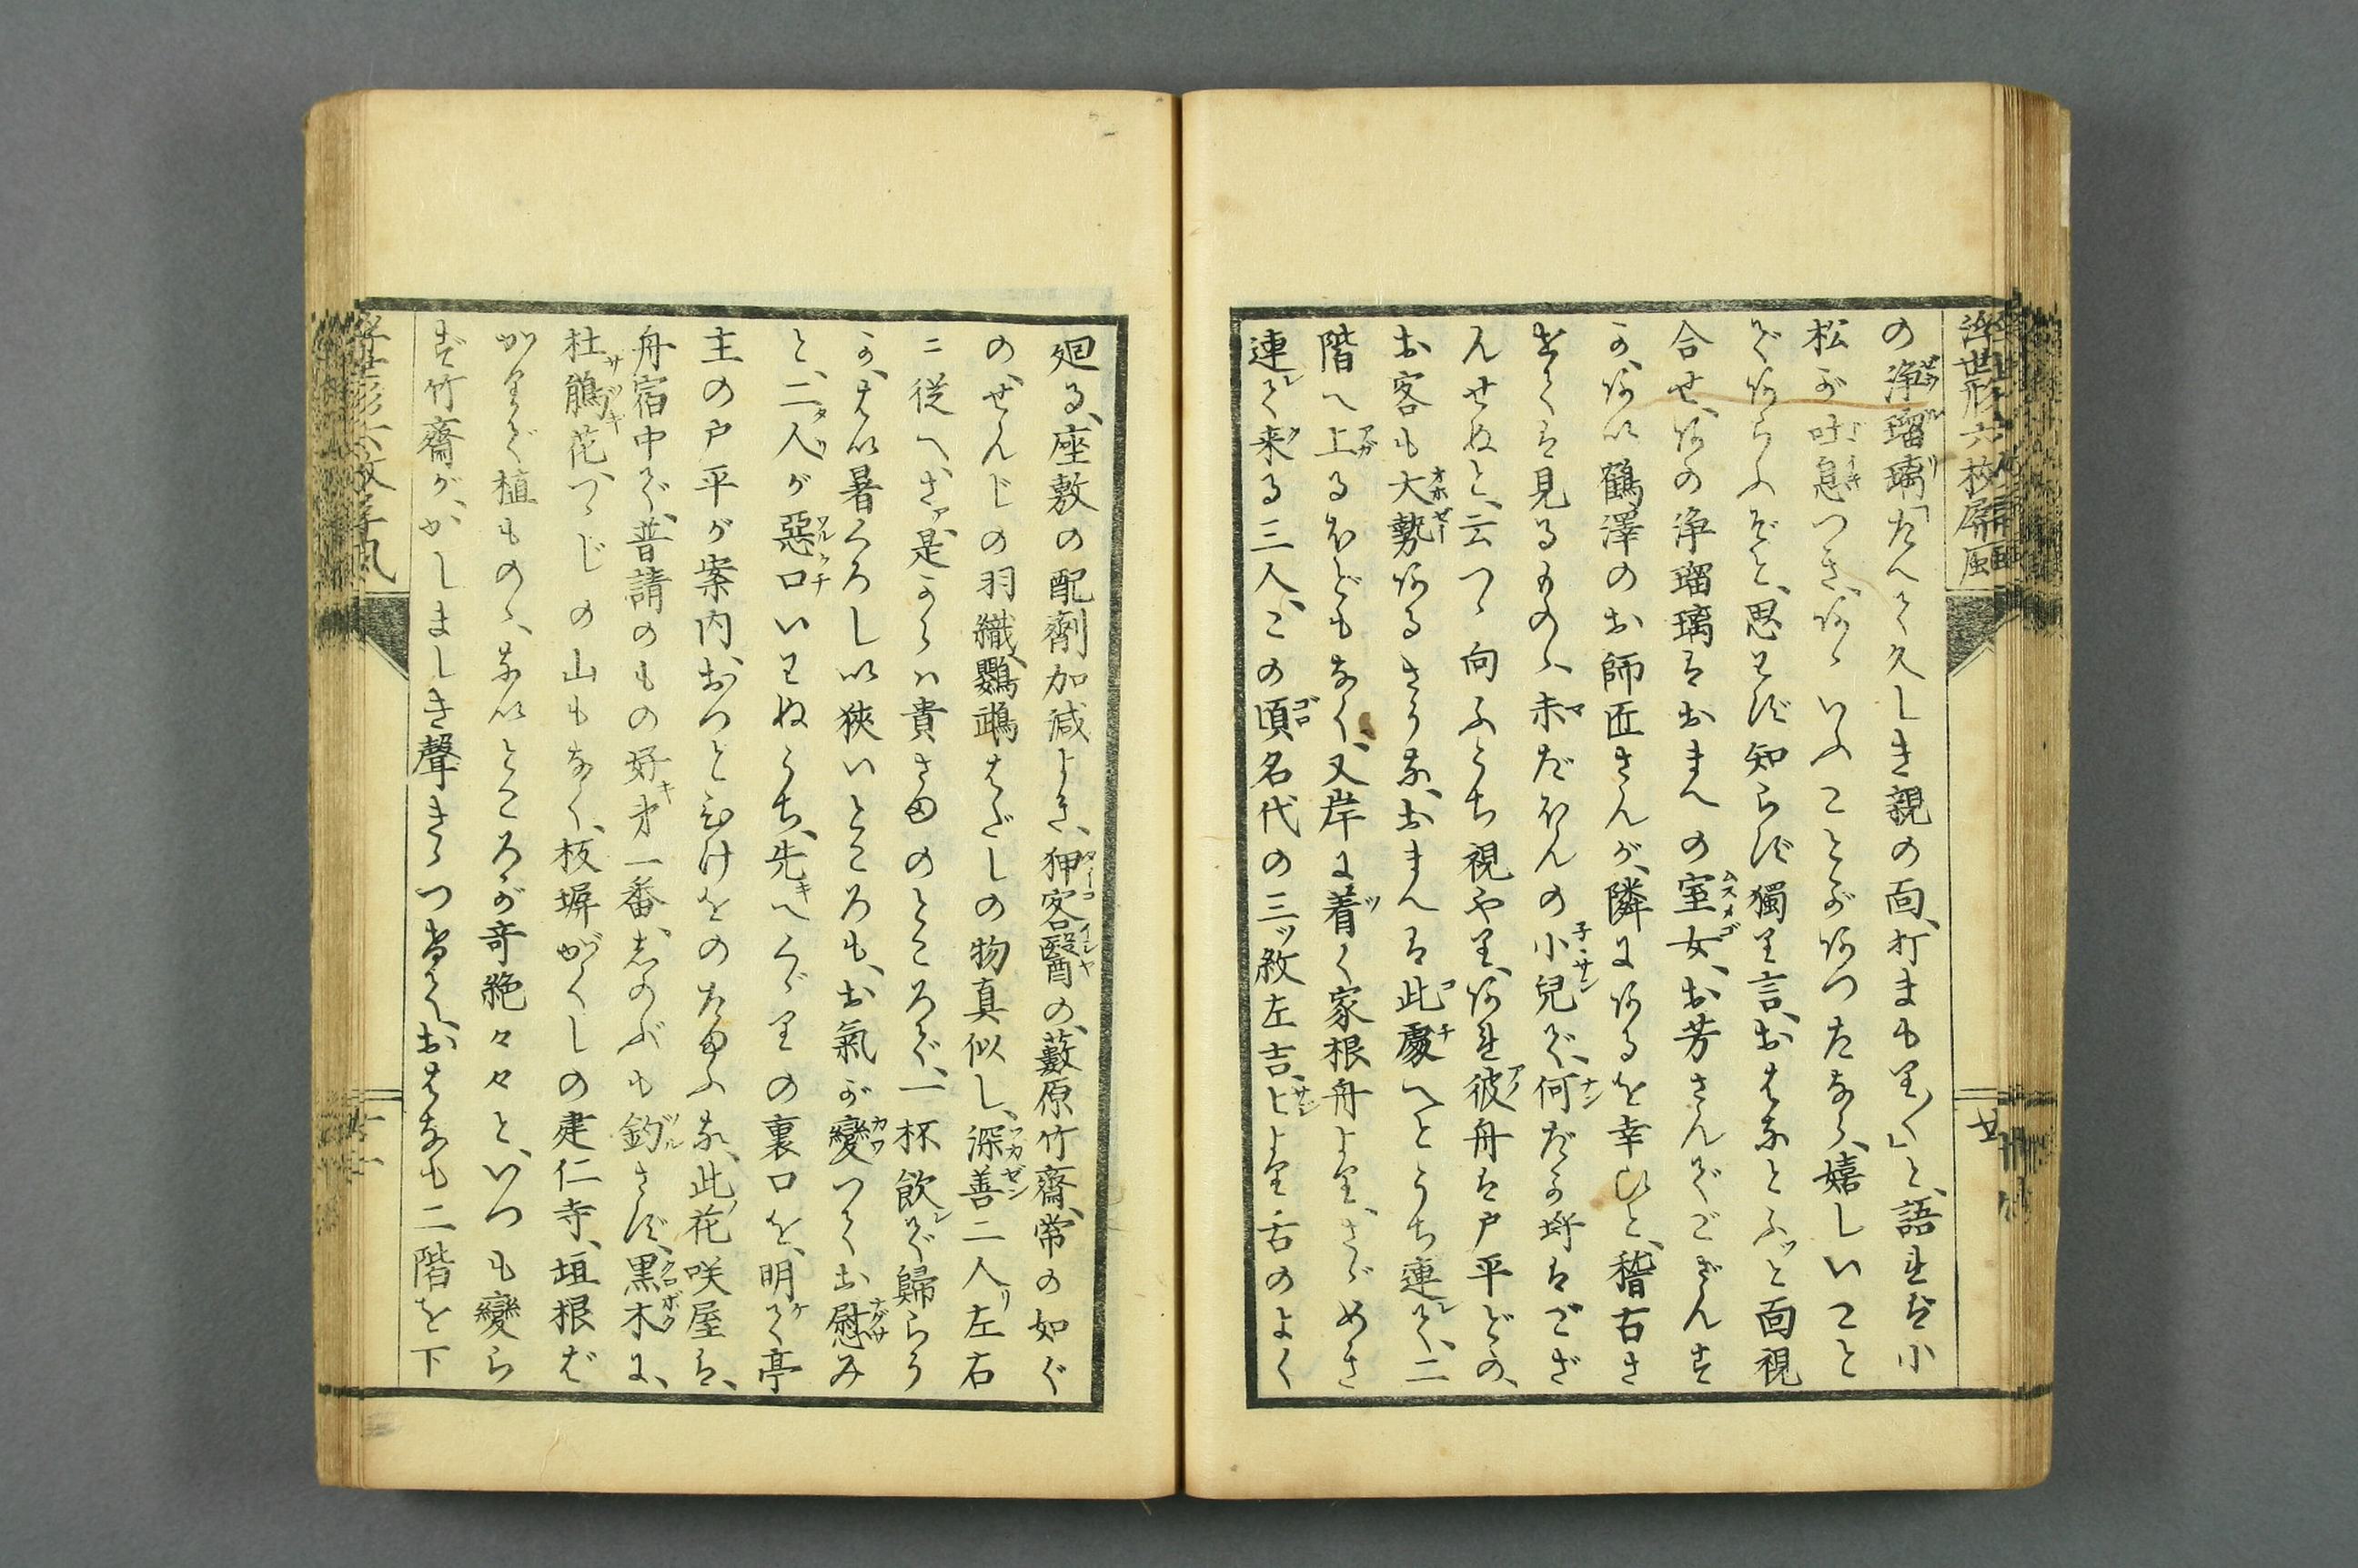 浮世形六枚屏風
の浄瑠璃「たへて久しき親の面、打まもり〳〵」と、語れば小
松が吐息つき、あゝいふことがあつたなら、嬉しいこと
であらふぞと、思はず知らず獨り言、おはなとふッと面視
合せ、あの浄瑠璃はおまへの室女、お芳さんでござんす
か、あい鶴澤のお師匠さんが、隣にあるを幸ひと、稽古さ
せては見るものゝ、未だほんの小兒で、何だか埒はござ
んせぬと、云つゝ向ふうち視やり、あれ彼舟は戸平どの、
お客も大勢あるさうな、おまんは此處へとうち連て、二
階へ上るほどもなく、又岸に着く家根舟より、さゞめき
連て来る三人、この頃名代の三ッ紋左吉、ヒより舌のよく
廿
廻る、座敷の配劑加減よき、狎客醫の、藪原竹齋、常の如く
の、せんじの羽織、鸚鵡はだしの物真似し、深善二人左右
ニ従へ、さア是からハ貴さまのところで、一杯飲で歸らう
か、はい暑くろしい狹いところも、お氣が變つてお慰み
と、二人が惡口いはぬうち、先へくゞりの裏口を、明て亭
主の戸平が案内、おつと心けをのたまふな、此花咲屋は、
舟宿中で、普請のもの好キ才一番、志のぶも釣さず、黒木に、
杜鵑花、つゝじの山もなく、板塀がくしの建仁寺、垣根ば
かりで植ものゝ、ないところが奇絶々々と、いつも變ら
ず竹齋が、かしましき聲きゝつけて、おはなも二階を下
浮世形六枚屏風